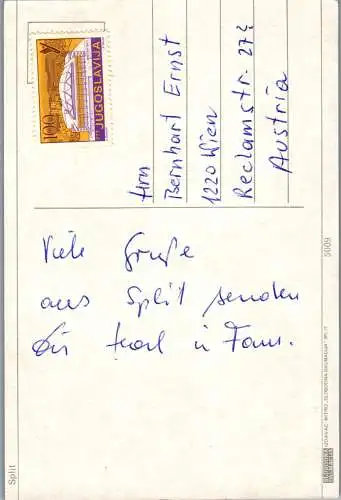 100
JUGOSLAVIJA
Hrn
Bernhart Ernst
1220 Wien
Reclamstr. 27
Austria
Viele Grüße
aus Split senden
Dir Karl u Fam.
Split
5009